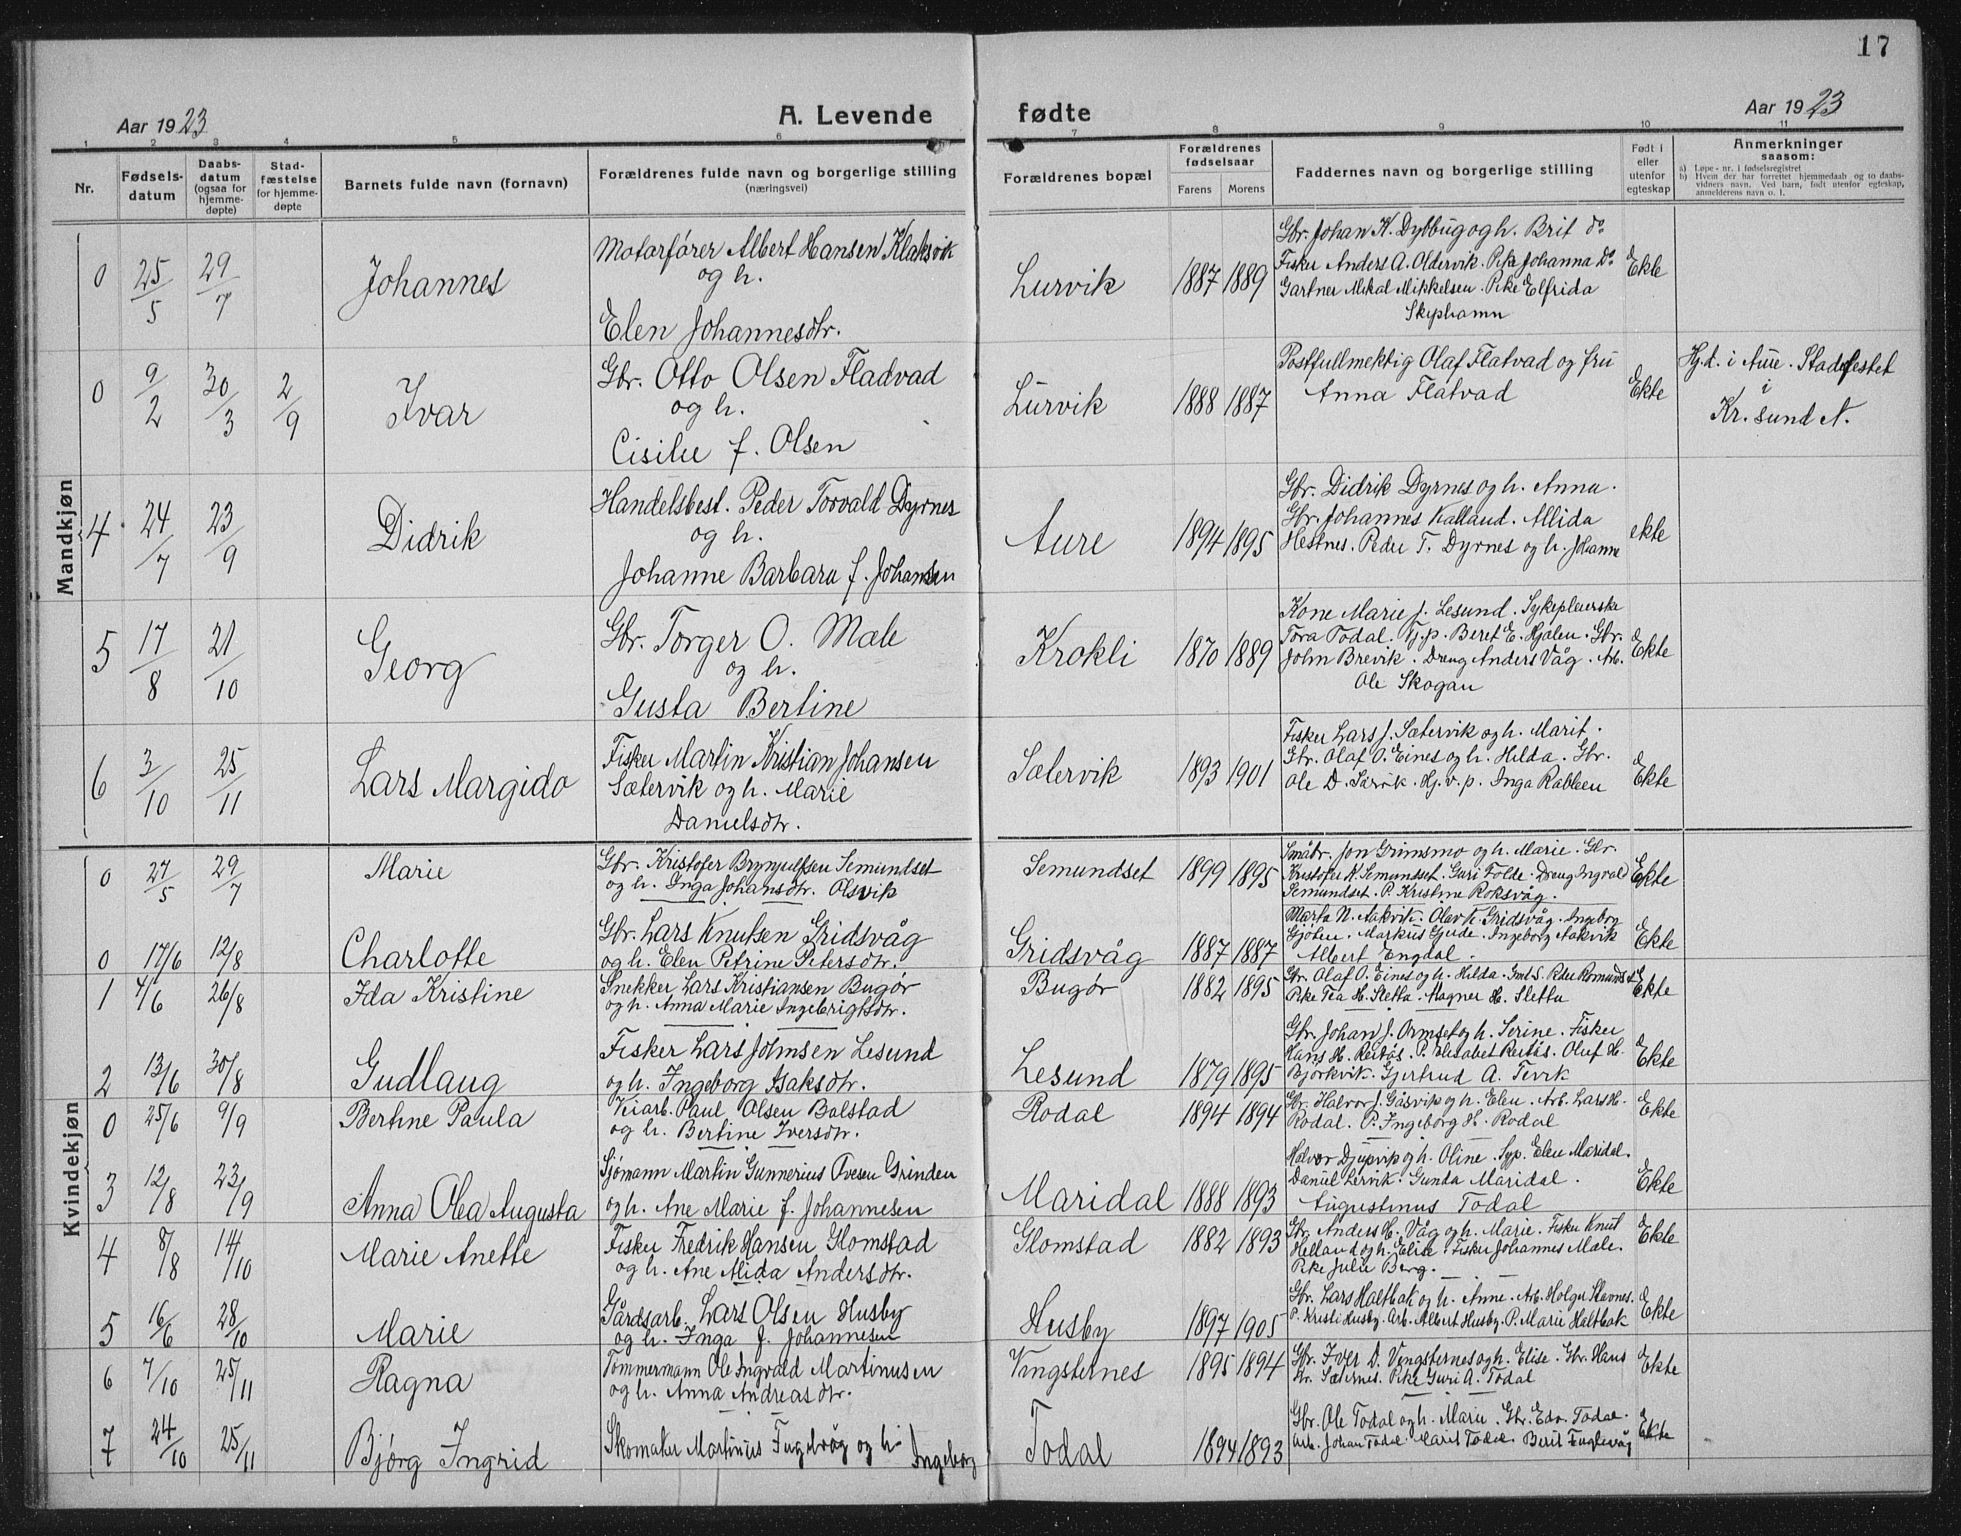 17
Aar 1923
A. Levende fødte
Aar 1923
1 2 3 4 5 6 7 8 9 10 11
Nr.
Fødsels-
datum
Daabs-
datum
(ogsaa for
hjemme-
døpte)
Stad-
fæstelse
for hjemme-
døpte
Barnets fulde navn (fornavn)
Forældrenes fulde navn og borgerlige stilling
(næringsvei)
Forældrenes bopæl
Forældrenes
fødselsaar
Farens Morens
Faddernes navn og borgerlige stilling
Født i
eller
utenfor
egteskap
Anmerkninger
saasom:
a) Løpe-nr. i fødselsregistret
b) Hvem der har forrettet hjemmedaab og to daabs-
vidners navn. Ved barn, født utenfor egteskap,
anmelderens navn o. l.
Mandkjøn
0 25/5 29/7 Johannes
Motorfører Albert Hansen Klaksvik
og h.
Elen Johannesdtr.
Lurvik 1887 1889
Gbr. Johan K. Dybbug og h. Brit do
Fisker Anders A. Oldervik. Pike Johanna Do
Gartner Mikal Mikkelsen. Pike Elfrida
Skiphamn
Ekte
0 9/2 30/3 2/9 Ivar
Gbr. Otto Olsen Fladvad
og h.
Cisilie f. Olsen
Lurvik 1888 1887
Postfullmektig Olaf Flatvad og fru
Anna Flatvad
Ekte
Hj.d. i Aure. Stadfestet
i
Kr.sund N.
4 24/7 23/9 Didrik
Handelsbest. Peder Torvald Dyrnes
og h.
Johanne Barbara f. Johansen
Aure 1894 1895
Gbr. Didrik Dyrnes og h. Anna.
Gbr. Johannes Kalland. Allida
Hestnes. Peder T. Dyrnes og h. Johanne
ekte
5 17/8 21/10 Georg
Gbr. Torger O. Male
og h.
Gusta Bertine
Krokli 1870 1889
Kone Marie J. Lesund. Sykepleierske
Tora Todal. Tj.p. Beret E. Hjølen. Gbr.
John Brevik. Dreng Anders Våg. Arb.
Ole Skogan
Ekte
6 3/10 25/11 Lars Margido
Fisker Martin Kristian Johansen
Sætervik og h. Marie
Danielsdtr.
Sætervik 1893 1901
Fisker Lars J. Sætervik og h. Marit.
Gbr. Olaf O. Eines og h. Hilda. Gbr.
Ole D. Sørvik. Hj.v.p. Inga Rableen
Ekte
Kvindekjøn
0 27/5 29/7 Marie
Gbr. Kristofer Brynjulfsen Semundset
og h. Inga Johansdtr. Olsvik
Semundset 1899 1895
Småbr. Jon Grimsmo og h. Marie. Gbr.
Kristofer K. Semundset. Guri Folde. Dreng Ingvald
Semundset. P. Kristine Roksvåg.
Ekte
0 17/6 12/8 Charlotte
Gbr. Lars Knutsen Gridsvåg
og h. Elen Petrine Petersdtr.
Gridsvåg 1887 1887
Marta N. Aakvik. Olav K. Gridsvåg. Ingeborg
Gjøten. Markus Gjude. Ingeborg Aakvik
Albert Engdal.
Ekte
1 4/6 26/8 Ida Kristine
Snekker Lars Kristiansen Bugør
og h. Anna Marie Ingebrigtsdtr.
Bugør 1882 1895
Gbr. Olaf O. Eines og h. Hilda. Gmt S. Peder Romundset
Pike Tea H. Sletta. Magner H. Sletta
Ekte
2 13/6 30/8 Gudlaug
Fisker Lars Johnsen Lesund
og h. Ingeborg Isaksdtr.
Lesund 1879 1895
Gbr. Johan J. Ormset og h. Serine. Fisker
Hans H. Reitås. P. Elisabet Reitås. Oluf H.
Bjørkvik. Gjertrud A. Tevik
Ekte
0 25/6 9/9 Bertine Paula
Veiarb. Paul Olsen Bolstad
og h. Bertine Iversdtr.
Rodal 1894 1894
Gbr. Halvor J. Gåsvik og h. Elen. Arb. Lars H.
Rodal. P. Ingeborg H. Rodal
Ekte
3 12/8 23/9 Anna Olea Augusta
Sjømann Martin Gunnerius Ovesen Grinden
og h. Ane Marie f. Johannesen
Maridal 1888 1893
Halvor Djupvik og h. Oline. Syp. Elen Maridal.
Daniel Lervik. Gunda Maridal.
Augustinus Todal
Ekte
4 8/8 14/10 Marie Anette
Fisker Fredrik Hansen Glomstad
og h. Ane Alida Andersdtr.
Glomstad 1882 1893
Gbr. Anders H. Våg og h. Marie. Fisker Knut
Helland og h. Elise. Fisker Johannes Male.
Pike Julie Berg.
Ekte
5 16/6 28/10 Marie
Gårdsarb. Lars Olsen Husby
og h. Inga f. Johannesen
Husby 1897 1905
Gbr. Lars Haltbak og h. Anne. Arb. Holger Stavnes.
P. Kristi Husby. Arb. Albert Husby. P. Marie Haltbak
Ekte
6 7/10 25/11 Ragna
Tømmermann Ole Ingvald Martinusen
og h. Anna Andreasdtr.
Vingsternes 1895 1894
Gbr. Iver D. Vingsternes og h. Elise. Gbr. Hans
Kr. Sæternes. Pike Guri A. Todal
Ekte
7 24/10 25/11 Bjørg Ingrid
Skomaker Martinus Fuglevåg og h. Ingeborg
Todal 1894 1893
Gbr. Ole Todal og h. Marie. Gbr. Edv. Todal.
Arb. Johan Todal. Marit Todal. Berit Fuglevåg
Ekte